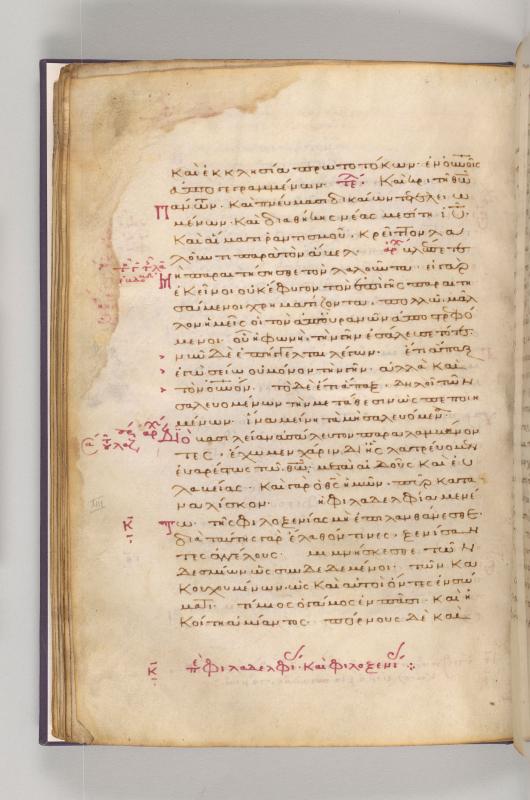 Καὶ ἐκκλησία πρωτοτόκων ἐν οὐνοῖς
ἀπογεγραμμένων. τε. Καὶ κριτῆ θω
πάντων. Καὶ πνεύμασι δικαίων τετελειω
μένων. Καὶ διαθήκης νέας μεσίτη ιυ.
Καὶ αἵματι ῥαντισμοῦ. Κρεῖττον λα
λοῦντι παρὰ τὸν ἄβελ. αρχ
Μὴ παραιτήσησθε τὸν λαλοῦντα. εἰ γὰρ
ἐκεῖνοι οὐκ ἔφυγον τὸν ἐπὶ γῆς παραιτη
σάμενοι χρηματίζοντα. πολλῶ μᾶλ
λον ἡμεῖς οἱ τὸν ἀπ οὐρανῶν ἀποστρεφό
μενοι. οὗ ἡ φωνὴ τὴν γῆν ἐσάλευσε τότε.
νῦν δὲ ἐπήγγελται λέγων. ἔτι ἅπαξ
ἐγὼ σείω οὐ μόνον τὴν γῆν. ἀλλὰ Καὶ
τὸν οὐνόν. τὸ δὲ ἔτι ἅπαξ. δηλοῖ τῶν
σαλευομένων τὴν μετάθεσιν ὡς πεποιη
μένων. ἵνα μείνη τὰ μὴ σαλευόμενα.
Διὸ βασιλείαν ἀσάλευτον παραλαμβάνον
τες. ἔχωμεν χάριν. δι ἧς λατρεύομεν
εὐαρέστως τῶ θω. μετὰ αἰδοῦς Καὶ εὐ
λαβείας. Καὶ γὰρ ὁ θς ἡμῶν. πῦρ Κατα
ναλίσκον. ἡ φιλαδελφία μενέ
τω. τῆς φιλοξενίας μὴ ἐπιλανθάνεσθε.
διὰ ταύτης γὰρ ἔλαθόν τινες. ξενίσαν
τες ἀγγέλους. μιμνήσκεσθε τῶν
δεσμίων ὡς συνδεδεμένοι. τῶν Κα
Κουχουμένων. ὡς Καὶ αὐτοὶ ὄντες ἐν σώ
ματι. τίμιος ὁ γάμος ἐν πᾶσι. Καὶ ἡ
Κοίτη ἀμίαντος. πόρνους δὲ Καὶ
Κ
Κ περὶ φιλαδελφι Καὶ φιλοξενι